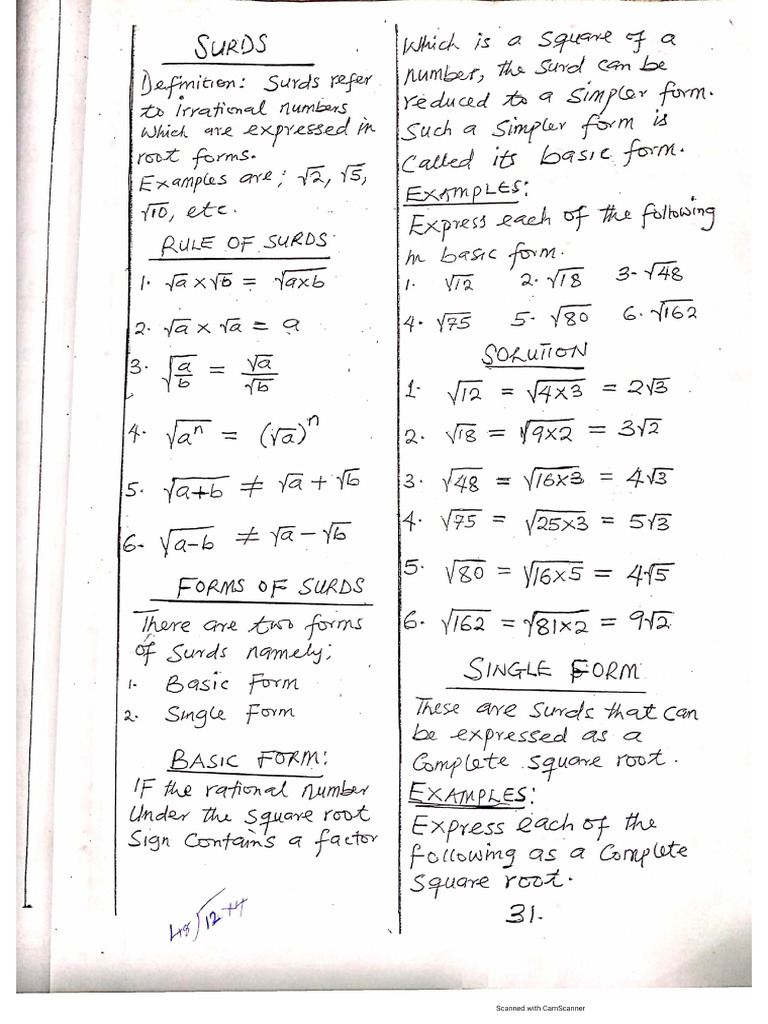 SURDS
Definition: Surds refer
to irrational numbers
which are expressed in
root forms.
Examples are; √2, √5,
√10, etc.
RULE OF SURDS
1. √a × √b = √a×b
2. √a × √a = a
3. √a/b = √a/√b
4. √aⁿ = (√a)ⁿ
5. √a+b ≠ √a + √b
6. √a-b ≠ √a - √b
FORMS OF SURDS
There are two forms
of Surds namely;
1. Basic Form
2. Single Form
BASIC FORM:
IF the rational number
Under the square root
Sign Contains a factor
Which is a square of a
number, the surd can be
reduced to a simpler form.
Such a simpler form is
Called its basic form.
EXAMPLES:
Express each of the following
in basic form.
1. √12 2. √18 3. √48
4. √75 5. √80 6. √162
SOLUTION
1. √12 = √4×3 = 2√3
2. √18 = √9×2 = 3√2
3. √48 = √16×3 = 4√3
4. √75 = √25×3 = 5√3
5. √80 = √16×5 = 4√5
6. √162 = √81×2 = 9√2
SINGLE FORM
These are surds that can
be expressed as a
Complete square root.
EXAMPLES:
Express each of the
following as a Complete
Square root.
31.
Scanned with CamScanner